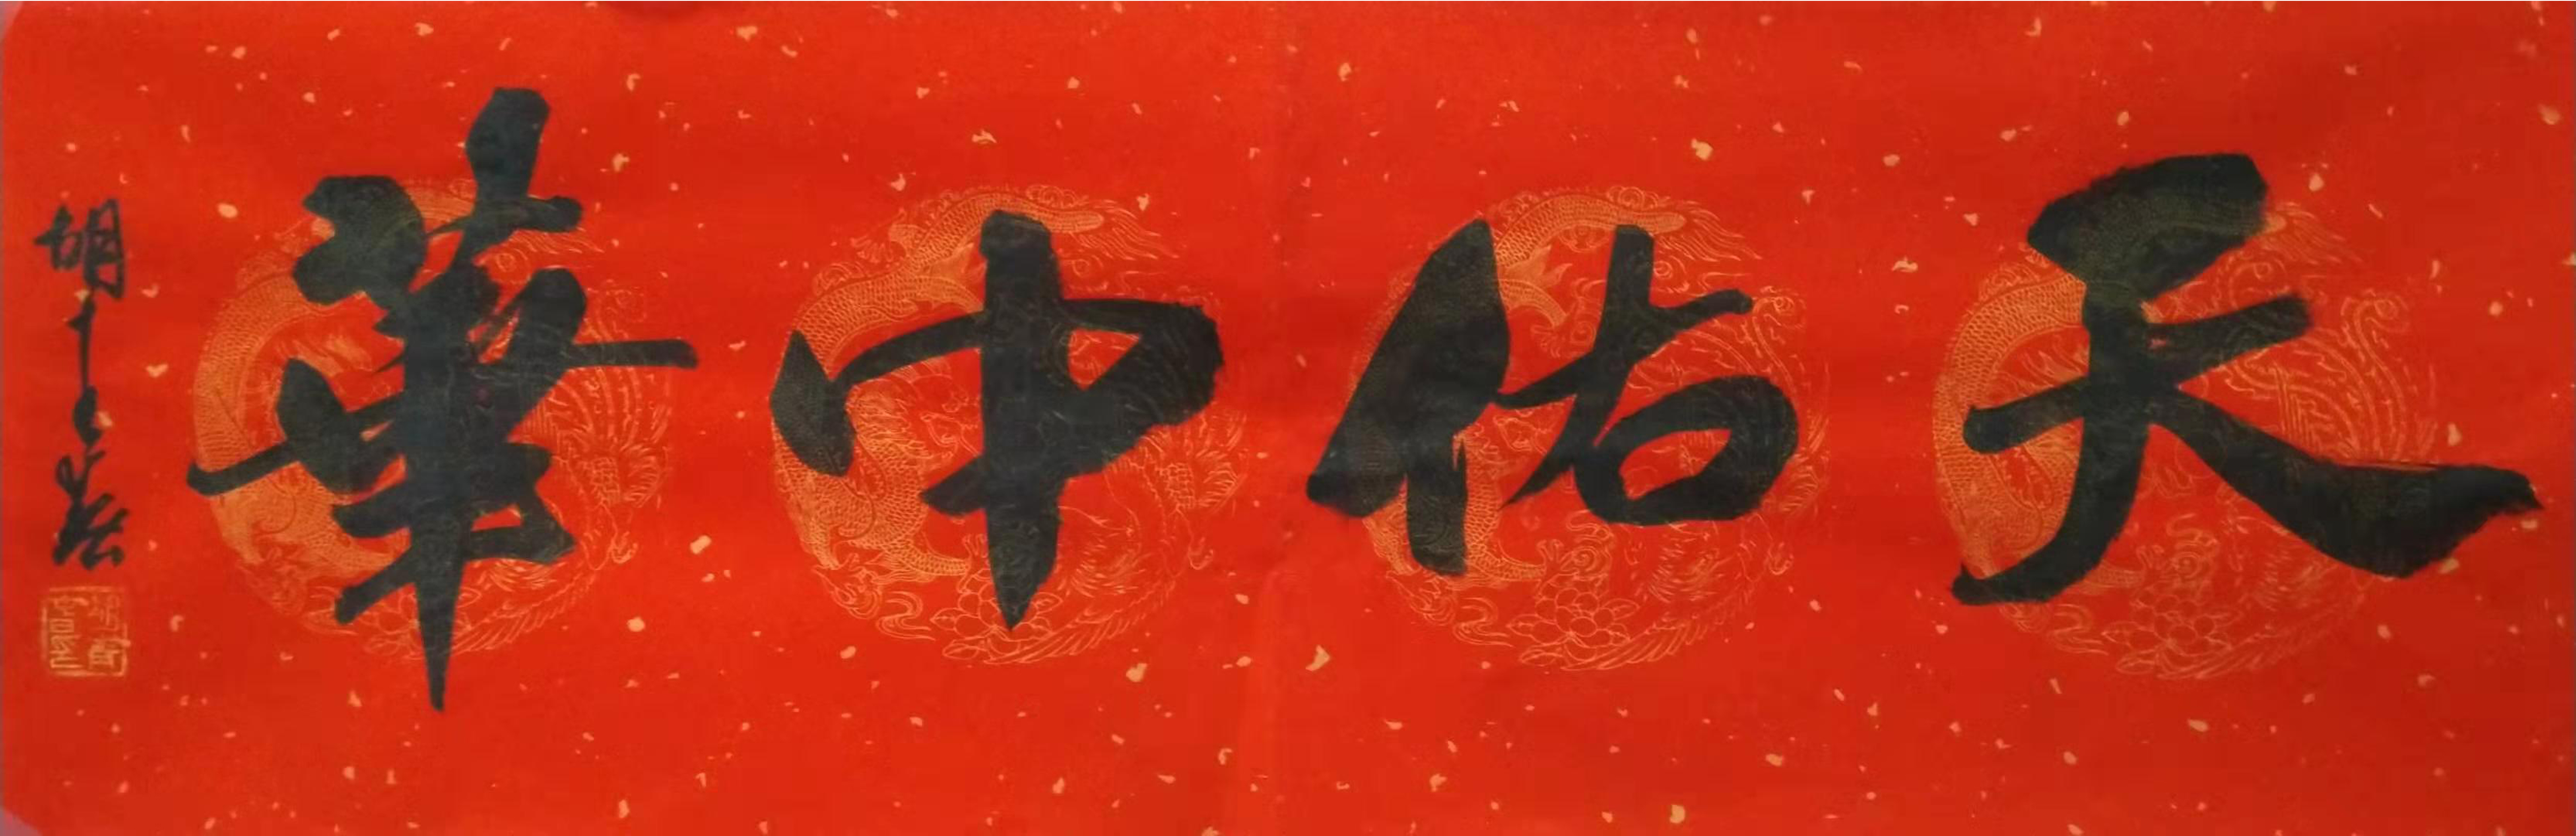 天佑中華
胡